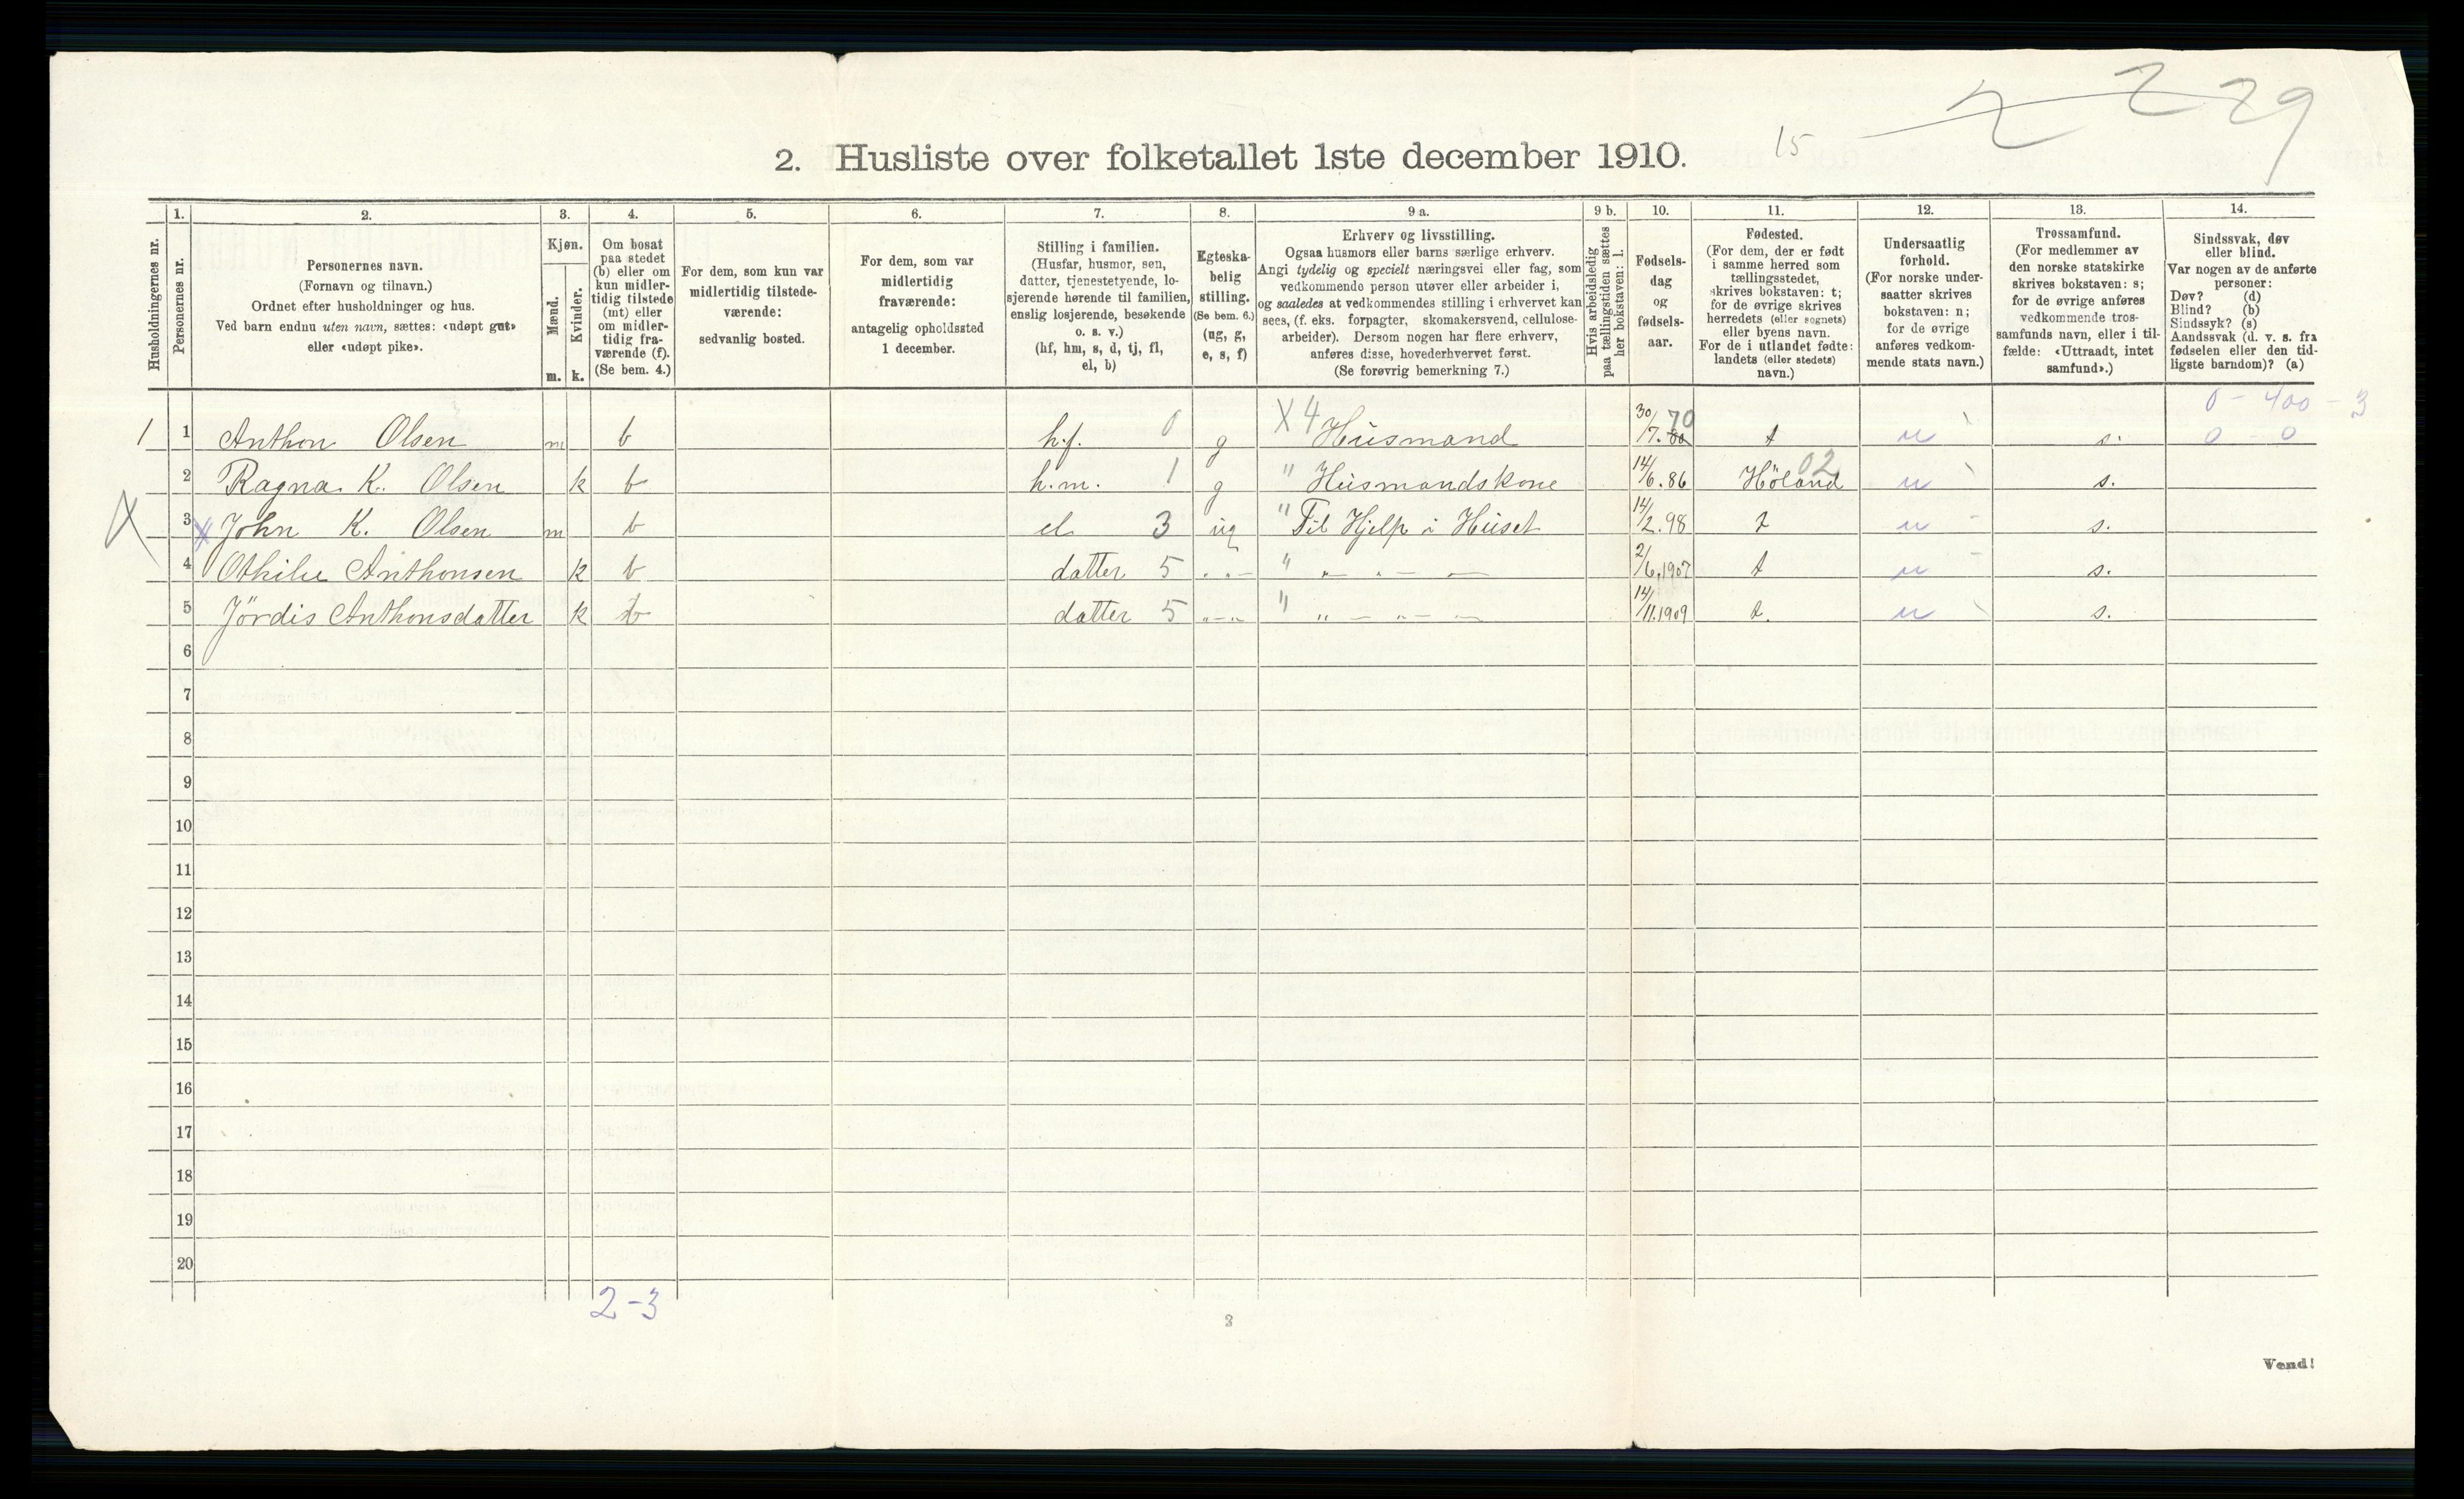 15 2 2 29
2. Husliste over folketallet 1ste december 1910.
Husholdningernes nr.
1. Personernes nr.
2. Personernes navn. (Fornavn og tilnavn.) Ordnet efter husholdninger og hus. Ved barn endnu uten navn, sættes: «udøpt gut» eller «udøpt pike».
3. Kjøn. Mænd. m. Kvinder. k.
4. Om bosat paa stedet (b) eller om kun midler- tidig tilstede (mt) eller om midler- tidig fra- værende (f). (Se bem. 4.)
5. For dem, som kun var midlertidig tilstede- værende: sedvanlig bosted.
6. For dem, som var midlertidig fraværende: antagelig opholdssted 1 december.
7. Stilling i familien. (Husfar, husmor, søn, datter, tjenestetyende, lo- sjerende hørende til familien, enslig losjerende, besøkende o. s. v.) (hf, hm, s, d, tj, fl, el, b)
8. Egteska- belig stilling. (Se bem. 6.) (ug, g, e, s, f)
9 a. Erhverv og livsstilling. Ogsaa husmors eller barns særlige erhverv. Angi tydelig og specielt næringsvei eller fag, som vedkommende person utøver eller arbeider i, og saaledes at vedkommendes stilling i erhvervet kan sees, (f. eks. forpagter, skomakersvend, cellulose- arbeider). Dersom nogen har flere erhverv, anføres disse, hovederhvervet først. (Se forøvrig bemerkning 7.)
9 b. Hvis arbeidsledig paa tællingstiden sættes her bokstaven: l.
10. Fødsels- dag og fødsels- aar.
11. Fødested. (For dem, der er født i samme herred som tællingsstedet, skrives bokstaven: t; for de øvrige skrives herredets (eller sognets) eller byens navn. For de i utlandet fødte: landets (eller stedets) navn.)
12. Undersaatlig forhold. (For norske under- saatter skrives bokstaven: n; for de øvrige anføres vedkom- mende stats navn.)
13. Trossamfund. (For medlemmer av den norske statskirke skrives bokstaven: s; for de øvrige anføres vedkommende tros- samfunds navn, eller i til- fælde: «Uttraadt, intet samfund».)
14. Sindssvak, døv eller blind. Var nogen av de anførte personer: Døv? (d) Blind? (b) Sindssyk? (s) Aandssvak (d. v. s. fra fødselen eller den tid- ligste barndom)? (a)
0 - 400 - 3
1 1 Anthon Olsen m b h.f. 0 g X 4 Husmand 30/7. 70 t n s. 0 - 0
2 Ragna K. Olsen k b h.m. 1 g " Husmandskone 14/6.86 Höland 02 n s.
X 3 X John K. Olsen m b el 3 ug " Til Hjelp i Huset 14/2.98 t n s.
4 Othilie Anthonsen k b datter 5 " - " " - " - 2/6.1907 t n s.
5 Jördis Anthonsdatter k b datter 5 " - " " " - " - 14/11.1909 t. n s.
6
7
8
9
10
11
12
13
14
15
16
17
18
19
20
2-3
3
Vend!